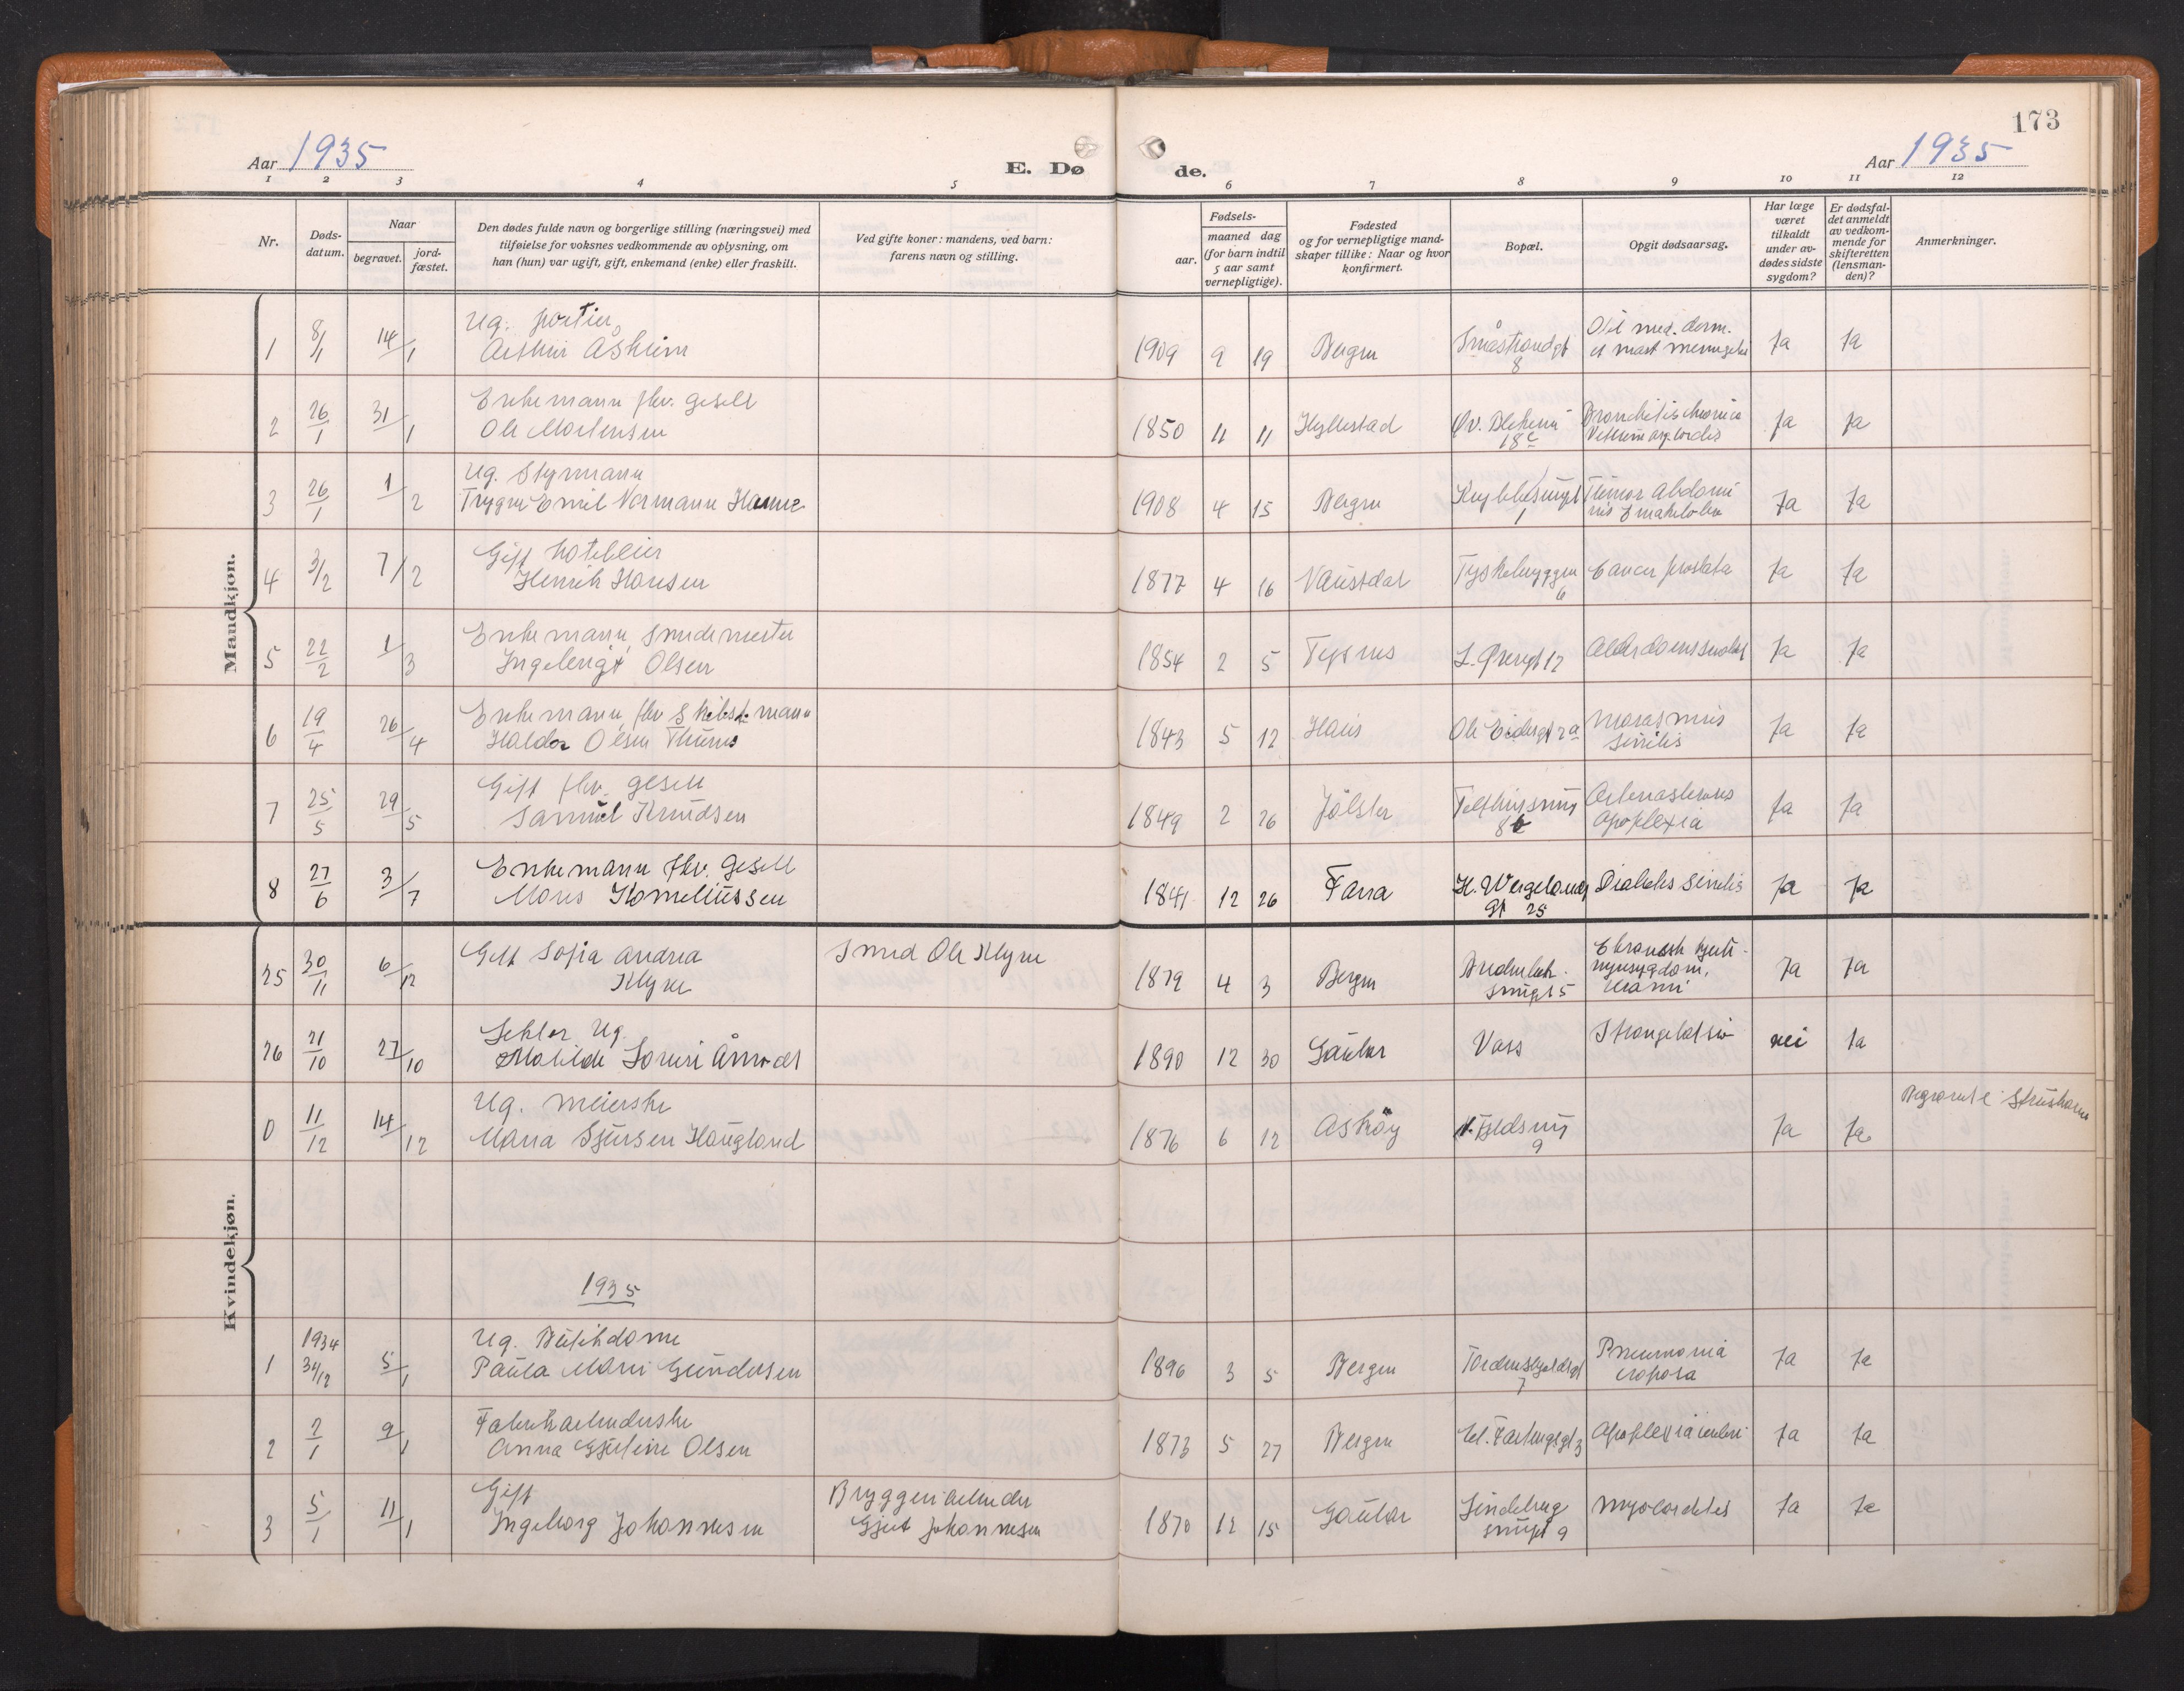 173
Aar 1935
E. Dø
de.
Aar 1935
1 2 3 4 5 6 7 8 9 10 11 12
Nr.
Døds-
datum.
Naar
begravet.
jord-
fæstet.
Den dødes fulde navn og borgerlige stilling (næringsvei) med
tilføielse for voksnes vedkommende av oplysning, om
han (hun) var ugift, gift, enkemand (enke) eller fraskilt.
Ved gifte koner: mandens, ved barn:
farens navn og stilling.
Fødsels-
aar.
maaned dag
(for barn indtil
5 aar samt
vernepligtige).
Fødested
og for vernepligtige mand-
skaper tillike: Naar og hvor
konfirmert.
Bopæl.
Opgit dødsaarsag.
Har læge
været
tilkaldt
under av-
dødes sidste
sygdom?
Er dødsfal-
det anmeldt
av vedkom-
mende for
skifteretten
(lensman-
den)?
Anmerkninger.
Mandkjøn.
1 8/1 14/1 Ug. portier,
Arthur Åsheim
1909 9 19 Bergen Småstrandgt 8 Otit med. Ja Ja
2 26/1 31/1 Enkemann fhv. gesell
Ole Mortensen
1850 11 11 Hyllestad Øv. Blekevei 18c Bronchitis chronica Ja Ja
3 26/1 1/2 Ug. Styrmann
Trygve Emil Normann Hanne
1908 4 15 Bergen 1 Tumor Abdomi Ja Ja
4 3/2 7/2 Gift hoteleier
Henrik Hansen
1877 4 16 Naustdal Tyskebryggen 6 Cancer prostata Ja Ja
5 22/2 1/3 Enkemann, smedemester
Ingebrigt Olsen
1854 2 5 Tysnes L. Øvregt 12 Ja Ja
6 19/4 26/4 Enkemann, fhv
Haldor Olsen Thunes
1843 5 12 Haus 2a Marasmus
senilis Ja Ja
7 25/5 29/5 Gift fhv. gesell
Samuel Knudsen
1849 2 26 Jölster 8 Apoplexia Ja Ja
8 27/6 3/7 Enkemann fhv. Gesell
Mons Korneliussen
1841 12 26 Fana H. Wergelands
gt 25 Diabetes senilis Ja Ja
Kvindekjøn.
25 30/11 6/12 Gift Sofia Andrea
Klyve
Smed Ole Klyve
1879 4 3 Bergen smuget 5 Chronisk hjerte-
nyresygdom,
Uræmi Ja Ja
26 21/10 27/10 Ug.
Matilde
1890 12 30 Gaular Voss Strangulatsio nei Ja
0 11/12 14/12 Ug. meierske
Maria Sjursen Haugland
1876 6 12 Askøy 9 Ja Ja
1935
1 1934
31/12 5/1 Ug. Butikdame
Paula Marie Gundersen
1896 3 5 Bergen Tordenskjoldsgt
7 Pneumonia
croposa Ja Ja
2 2/1 9/1 Fabrikarbeiderske
Anna Gjertine Olsen
1873 5 27 Bergen 3 Apoplexia cerebri Ja Ja
3 5/1 11/1 Gift
Ingeborg Johannesen
Bryggeriarbeider
Gjert Johannesen
1870 12 15 Gaular smuget 9 Myocarditis Ja Ja